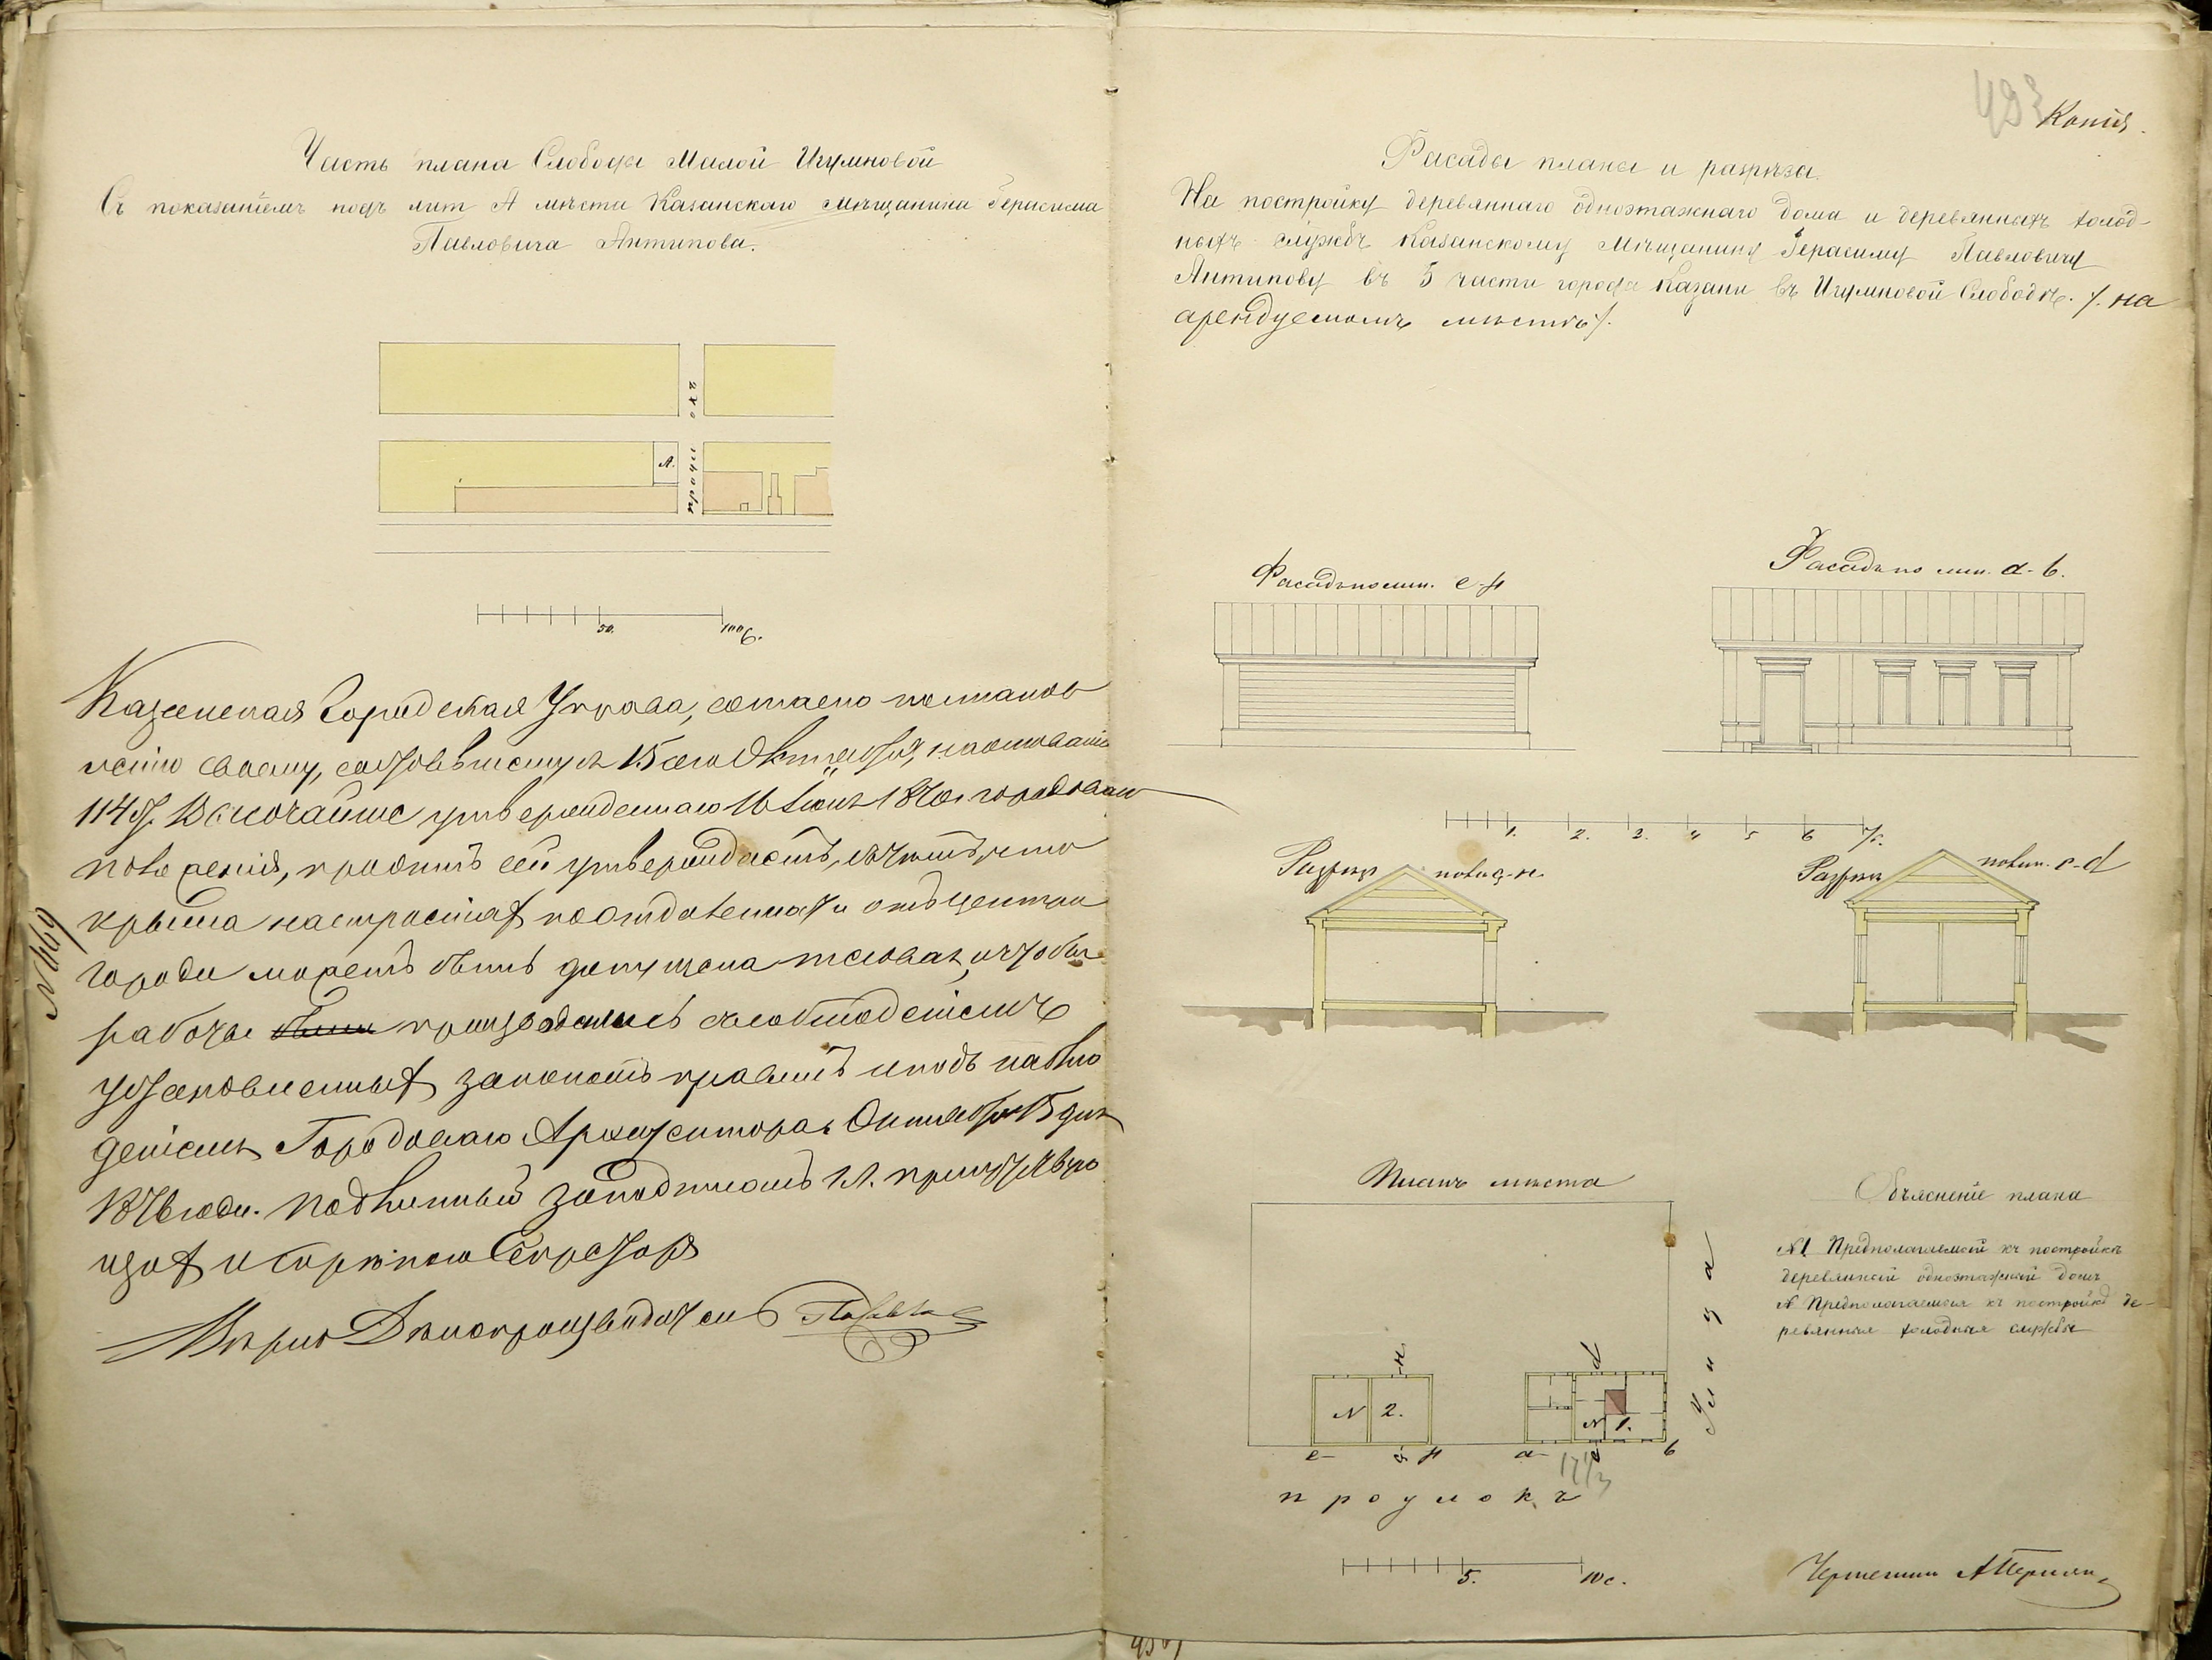 Часть плана Слободы Малой Игумновой
Съ показаніемъ подъ лит А места Казанскаго мѣщанина Герасима
Павловича Антипова.
проулокъ
А.
50. 100 с.
Казанская Городская Управа, согласно постанов
ленію своему, состоявшемуся 15 сего Октября, на основаніи
114 ст. Высочайше утвержденнаго 16 Іюня 1870 г. городоваго
положенія, проэктъ сей утверждаетъ, съ тѣмъ, что
крыша на строеніях по отдаленности отъ центра
города можетъ быть допущена тесовая, и чтобы
работы производились съ соблюденіемъ
установленныхъ закономъ правилъ и подъ наблю
деніемъ Городоваго Архитектора. Октября 15 дня
187 года. Подлинный за подписомъ
и скрѣпою Секретаря
Вѣрно Дѣлопроизводитель
№ 469
493
Копія.
Фасады планы и разрѣзы.
На постройку деревяннаго одноэтажнаго дома и деревянныхъ холод-
ныхъ службъ Казанскому Мѣщанину Герасиму Павловичу
Антипову въ 5 части города Казани въ Игумновой Слободкѣ. /. на
арендуемомъ мѣстѣ /.
Фасадъ по лин. е-f
Фасадъ по лин. а-b.
1. 2. 3. 4 5 6 7 с.
Разрѣзъ по лин. g-н
Разрѣзъ по лин. c-d
Планъ мѣста
Объясненіе плана
№1 Предполагаемый къ постройкѣ
деревянный одноэтажный домъ
№ Предполагаемыя къ постройкѣ де-
ревянныя холодныя службы
Улица
н d
№ 2. № 1.
е g f а c b
17 1/3
проулокъ
5. 10 с.
Чертилъ